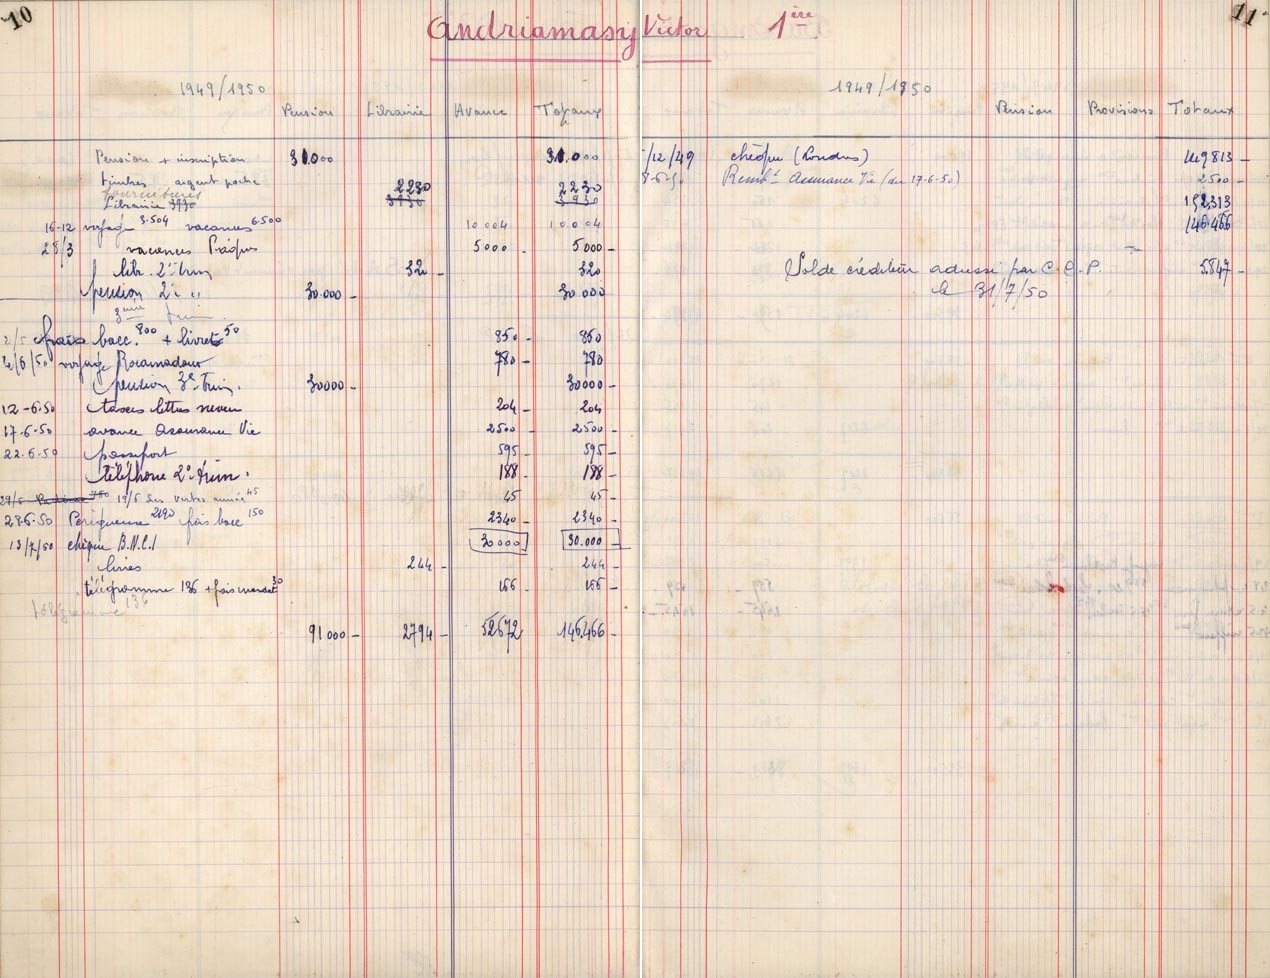 10
Andriamasy Victor 1ère
11
1949/1950
Pension Librairie Avance Totaux
Pension + inscription 31.000 31.000
timbres argent poche 2230 2230
fournitures
Librairie 3930 3930 3930
16-12 voyage 3.504 vacances 6.500 10004 10.004
28/3 vacances Pâques 5000 - 5000 -
libr. 2e trim 320 - 320
pension 2e " 30.000 - 30 000
frais bacc. 800 + livret 50 850 - 850
4/6/50 voyage Rocamadour 780 - 780
pension 3e Trim. 30000 - 30000 -
12-6-50 taxes lettres neveu 204 - 204
17-6-50 avance assurance Vie 2500 - 2500 -
22.6.50 passeport 595 - 595 -
téléphone 2e trim. 188 188 -
19/6 Les vertes année 45 45 45 -
28.6.50 Périgueux 2190 frais bacc 150 2340 - 2340 -
13/7/50 chèque B.N.C.I 30000 30.000 -
livres 244 - 244 -
télégramme 136 + frais mandat 30 166 - 166 -
télégramme 136
91000 - 2794 - 52672 146.466 -
1949/1950
Pension Provisions Totaux
/12/49 chèque (Londres) 149813 -
Rembt Assurance Vie (du 17-6-50) 2500 -
152,313
146.466
Solde créditeur adressé par C.C.P. 5.847 -
le 31/7/50